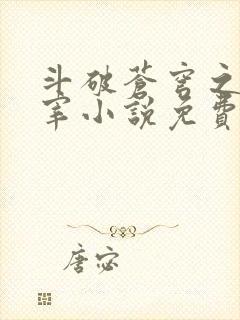 斗破蒼穹之
宰小說免費
唐宓